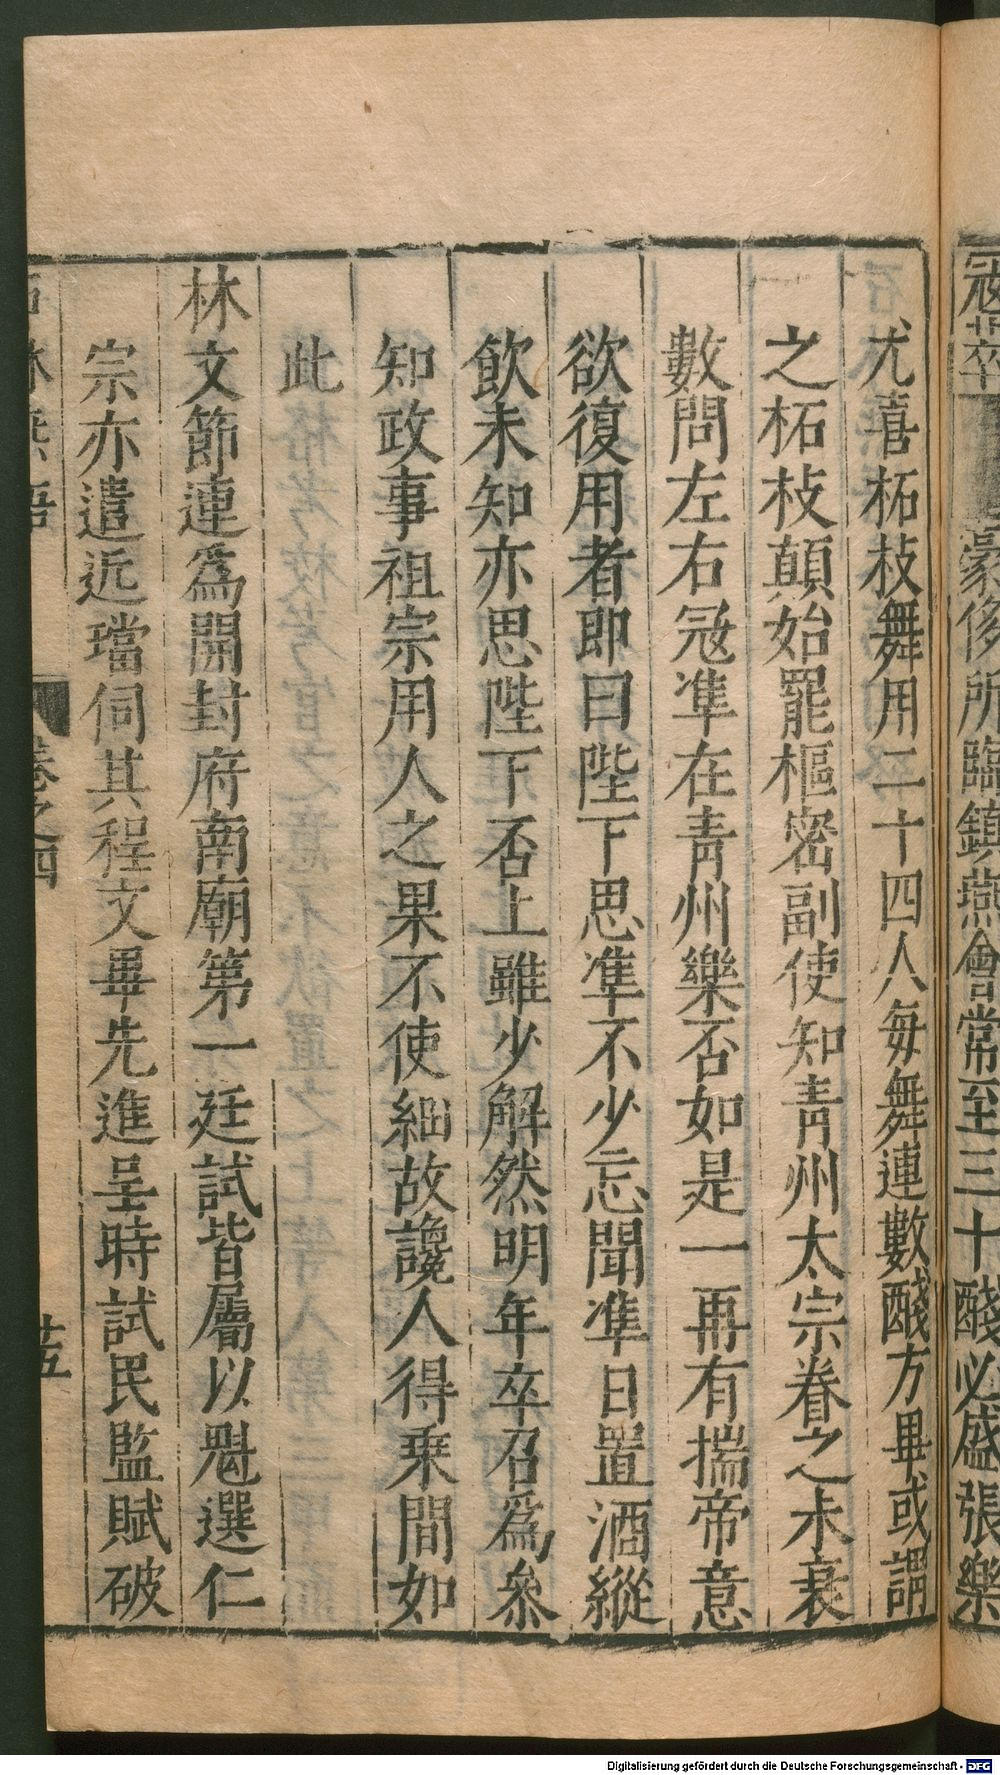 寇萊 豪侈所臨鎮燕會常至三十醆必盛張樂
尤喜柘枝舞用二十四人每舞連數醆方畢或謂
之柘枝顛始罷樞密副使知青州太宗眷之未衰
數問左右冦準在青州樂否如是一再有揣帝意
欲復用者即曰陛下思準不少忘聞準日置酒縱
飲未知亦思陛下否上雖少解然明年卒召爲叅
知政事祖宗用人之果不使細故讒人得乗間如
此
林文節連爲開封府南廟第一廷試皆屬以魁選仁
宗亦遣近璫伺其程文畢先進呈時試民監賦破
石林燕語 卷之四 五
Digitalisierung gefördert durch die Deutsche Forschungsgemeinschaft - DFG